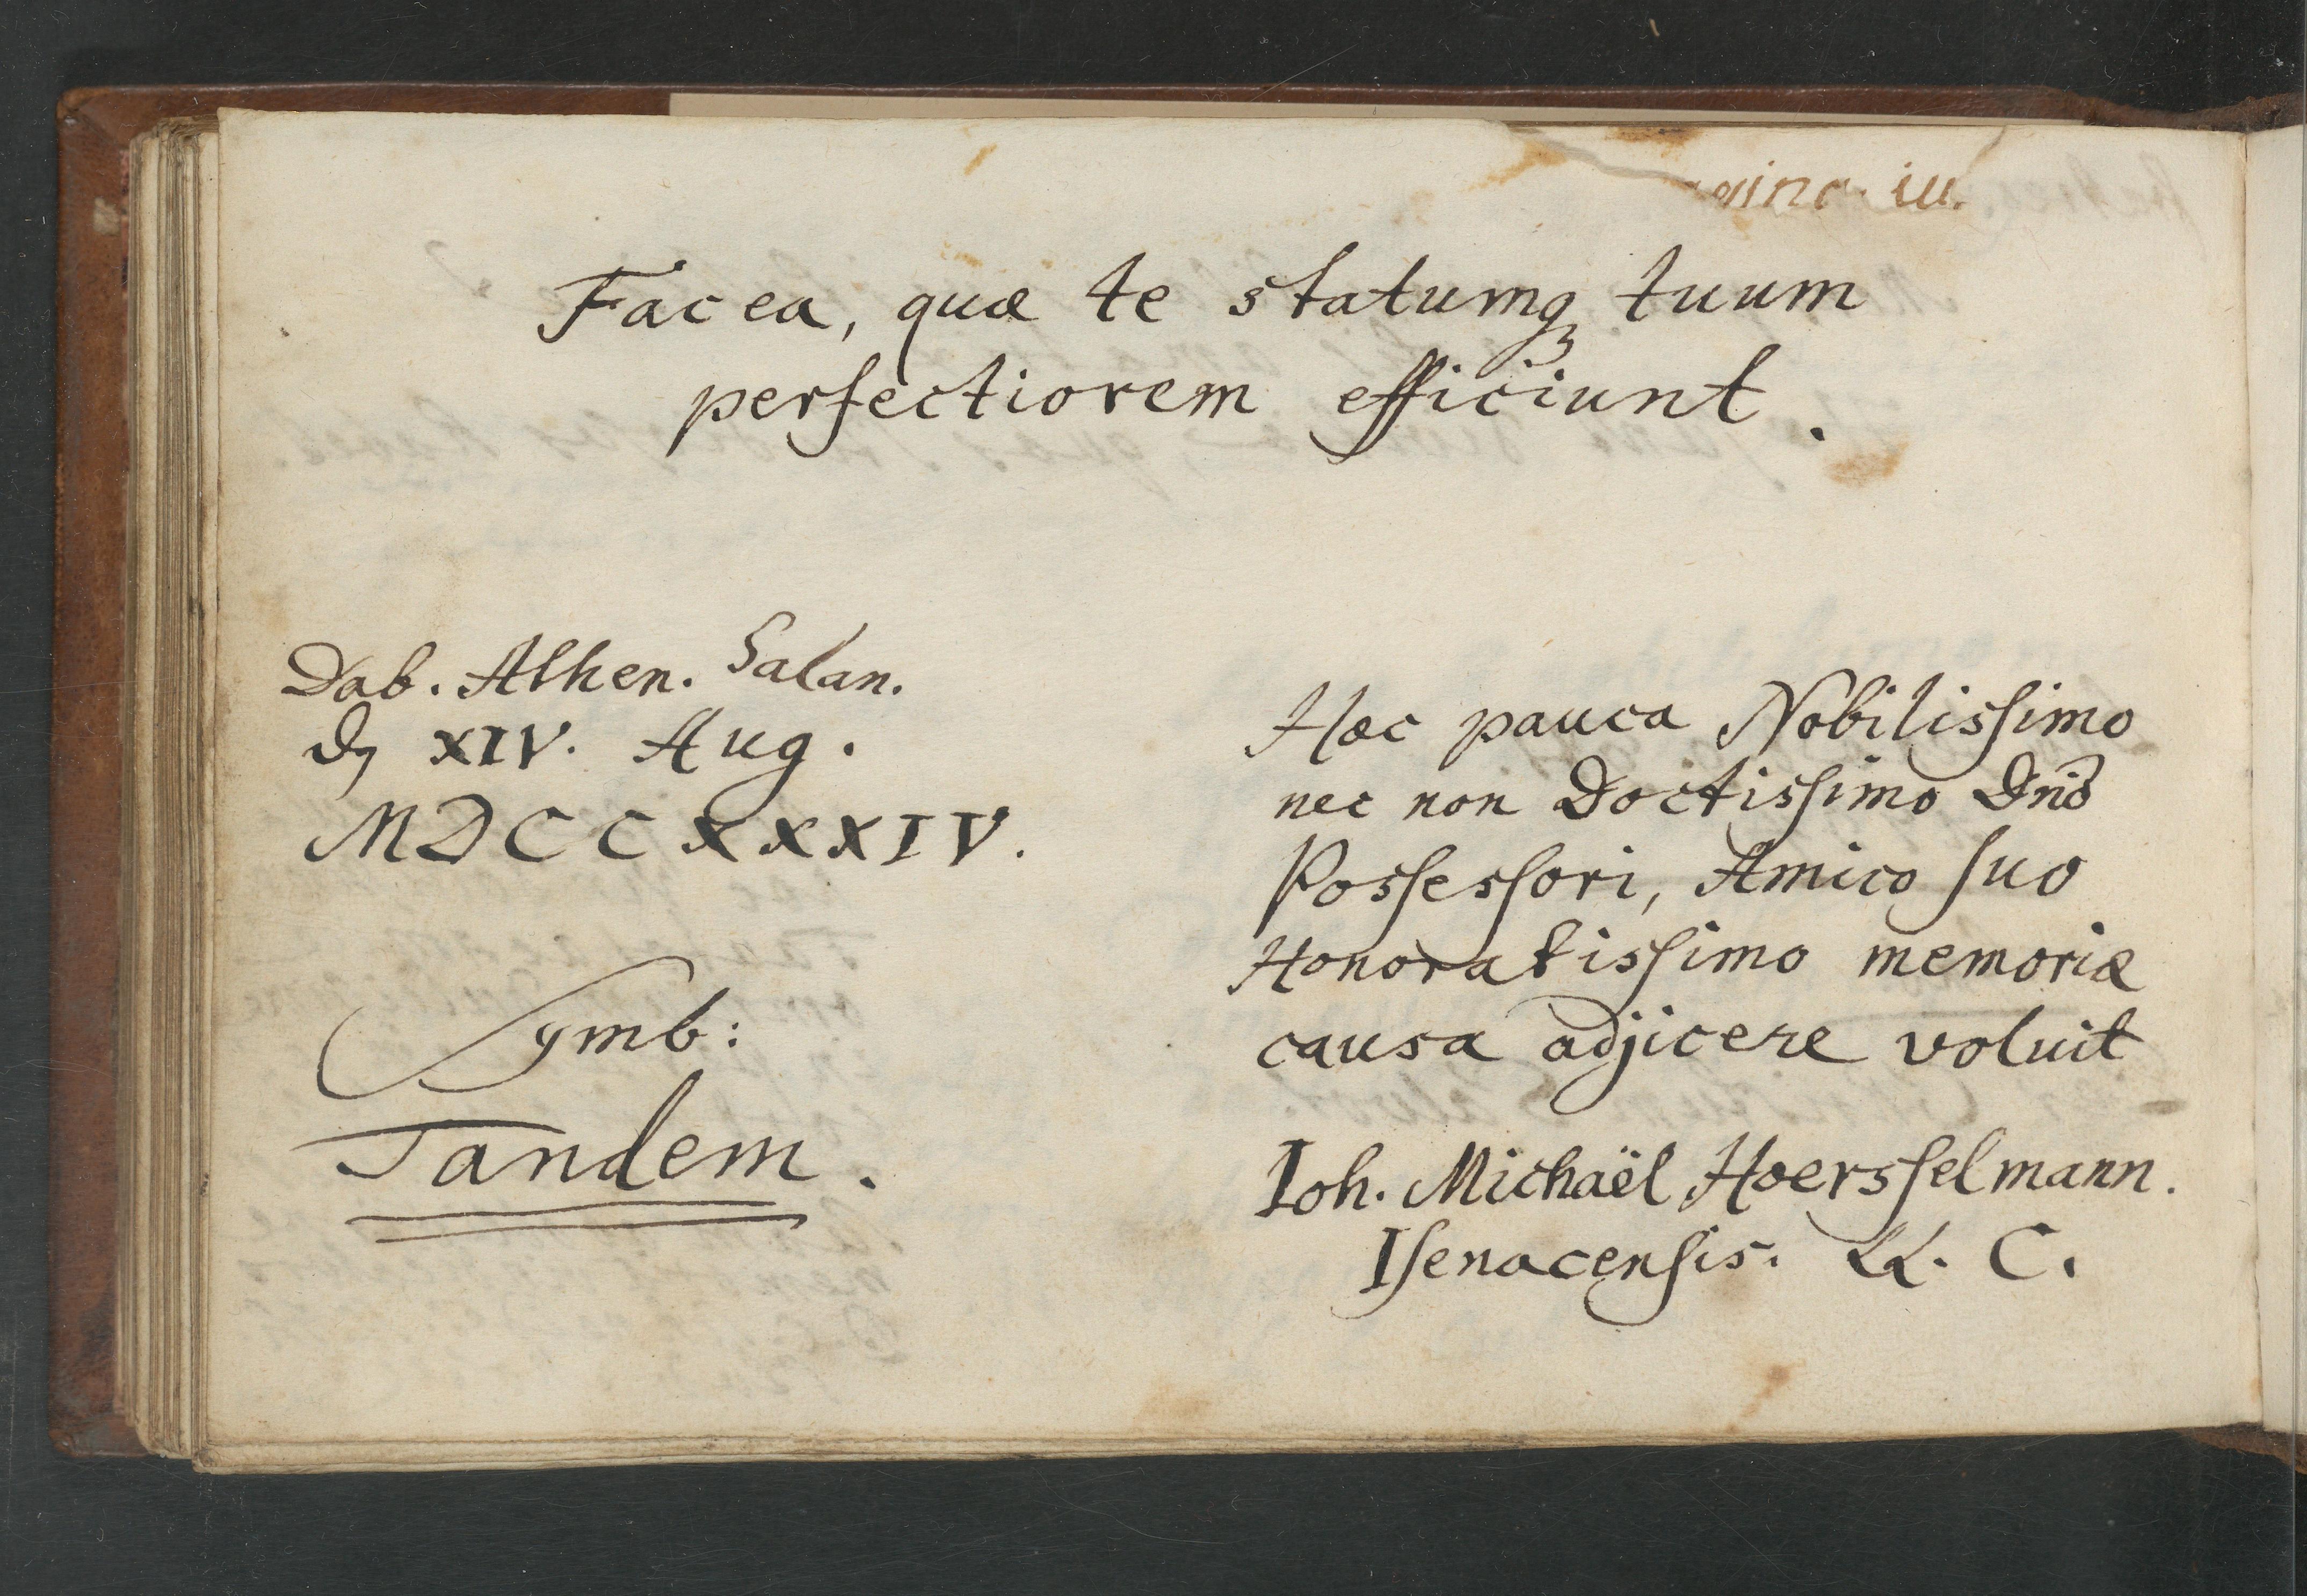 Fac ea, quæ te statumq₃ tuum
perfectiorem efficiunt.
Dab. Athen. Salan.
Dꝫ XIV. Aug.
MDCCXXXIV.
Symb:
Tandem.
Hæc pauca Nobilisſimo
nec non Doctisſimo Dn̄o
Posſesſori, Amico ſuo
Honoratisſimo memoriæ
causa adjicere voluit
Ioh. Michaël Hoersſelmann.
Iſenacenſis. LL. C.